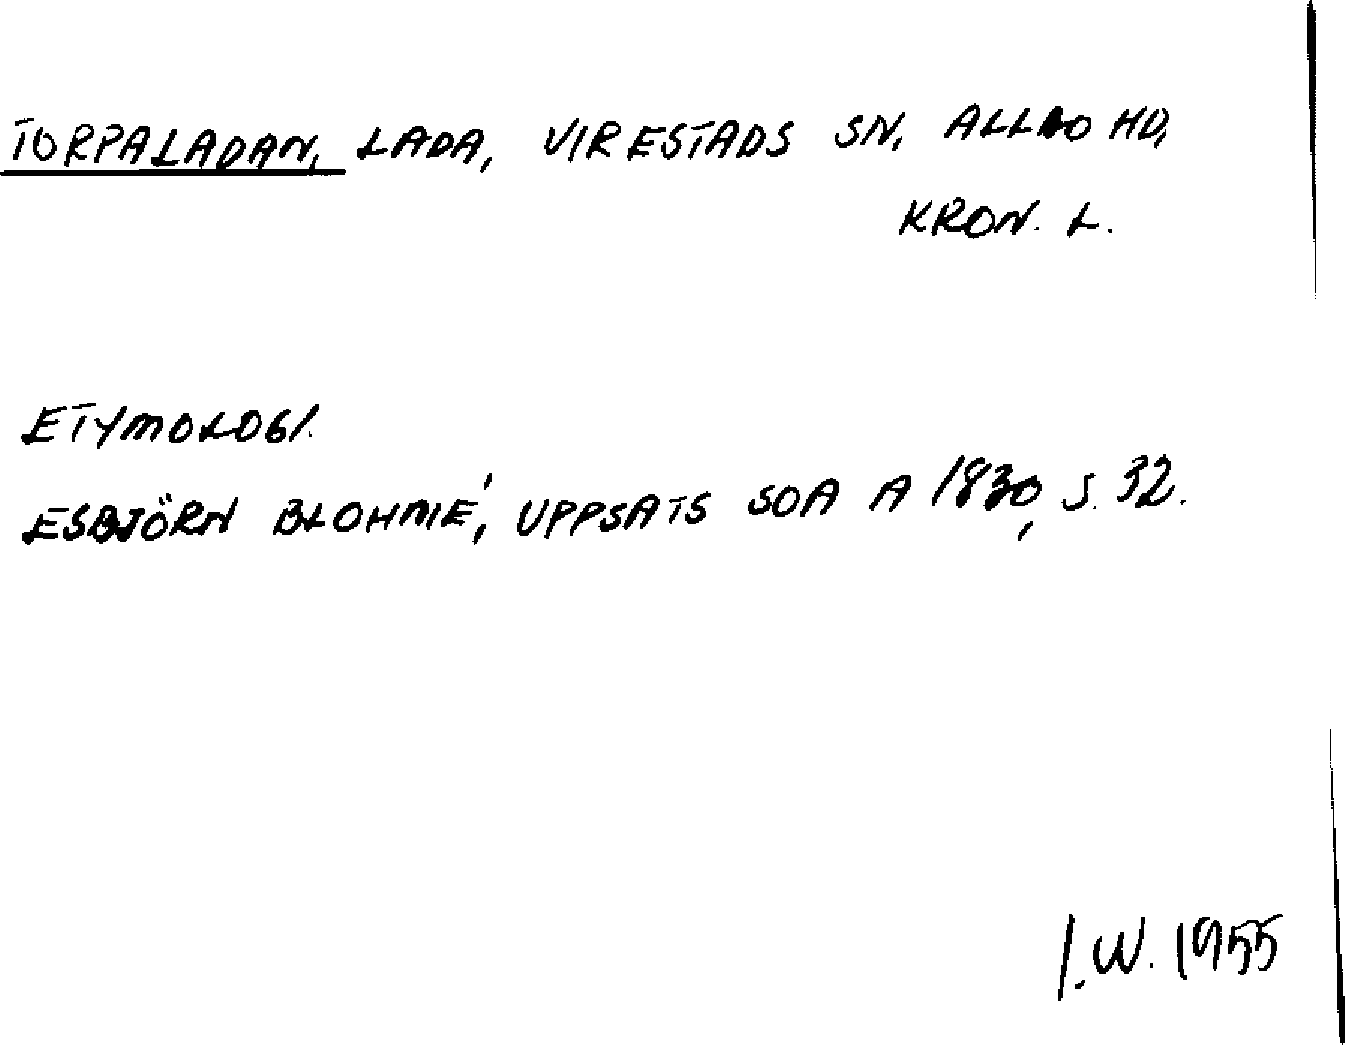 TORPALADAN, LADA, VIRESTADS SN, ALLBO HD,
KRON. L.
ETYMOLOGI.
ESBJÖRN BLOHMÉ, UPPSATS SOA A 1830, S. 32.
I.W. 1955